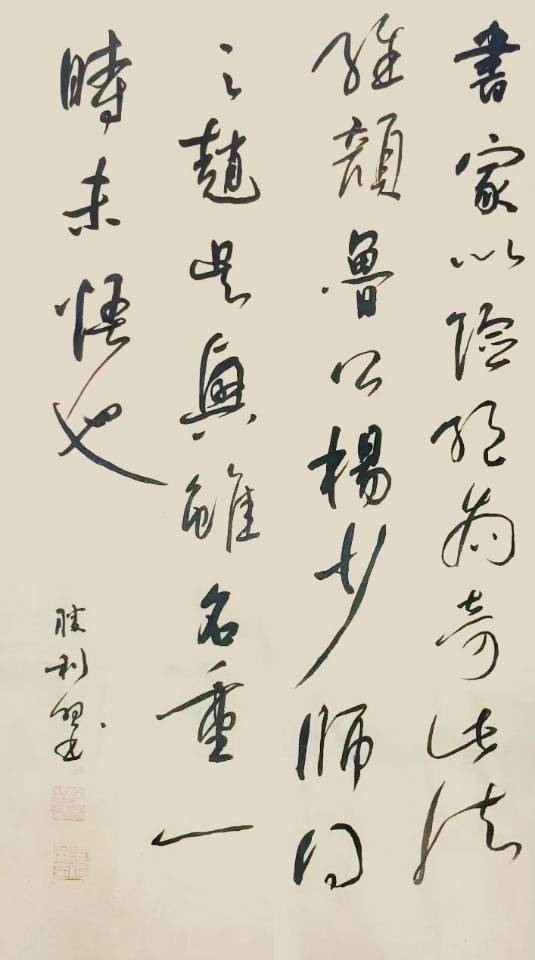 書家以险絕為奇此法
維顏魯公楊少師得
之趙吳興雖名重一
時未悟也
勝利